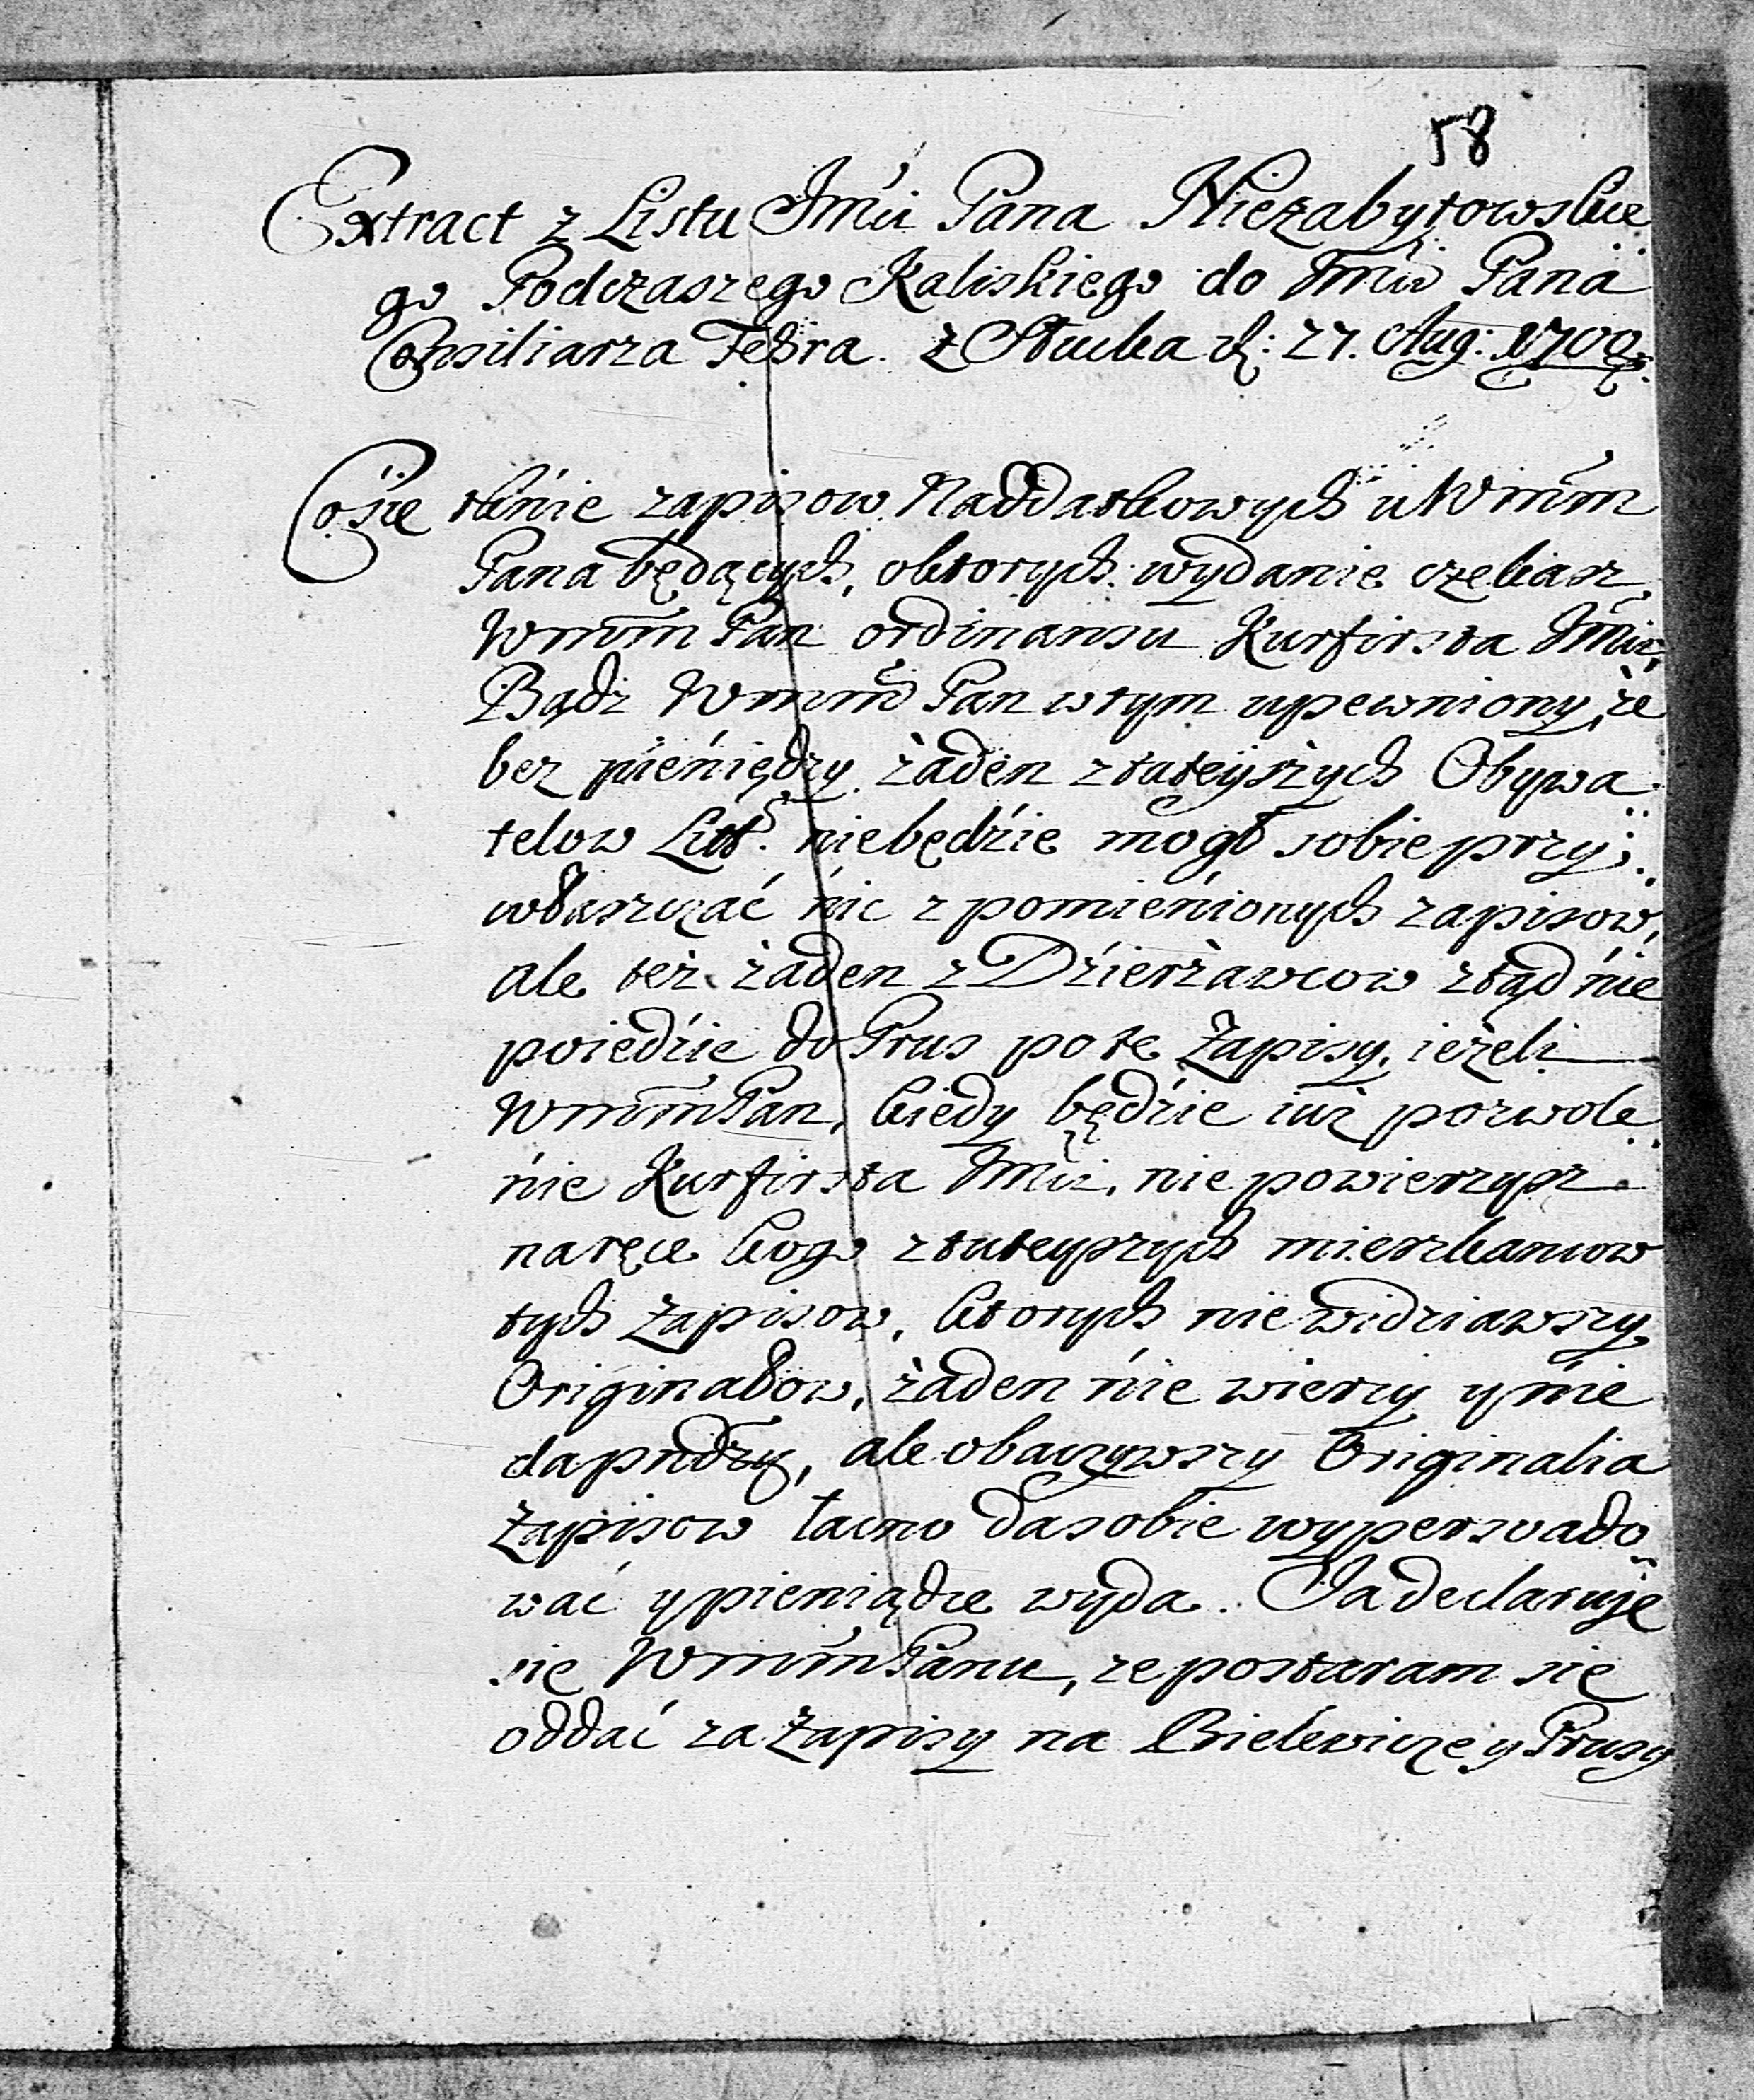 58
Extract z Listu Jmći Pana Niezabytowskie
go Podczaszego Kaliskiego do Jmći Pana
Consiliarza Fehra. z Słucka d: 27. Aug: 1700.
Co się tknie zapisow Naddatkowych u Wmm
Pana będących, o ktorych wydanie czekasz
Wmm Pan ordinansu Kurfirsta Jmći,
Bądz Wmm Pan w tym upewniony, że
bez pieniędzy żaden z tuteyszych Obywa
telow Litt. nie będzie mogł sobie przy:
własczać nic z pomienionych zapisow,
ale też żaden z Dzierżawcow ztąd nie
poiedzie do Prus po te Zapisy, ieżeli
Wmm Pan, kiedy będzie iuż pozwole
nie Kurfirsta Jmći, nie powierzysz
na ręce kogo z tuteyszych mieszkancow
tych Zapisow, ktorych nie widziawszy
Originałow, żaden nie wierzy y nie
da pndzy, ale obaczywszy Originalia
Zapisow łacno da sobie wyperswado
wać y pieniądze wyda. Ja declaruję
się Wmm Panu, ze postaram się
oddać za Zapisy na Bielewicze y Prusy